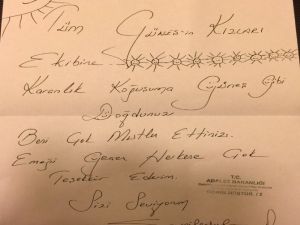 Tüm Güneş'in Kızları
Ekibine
Karanlık Koğuşuma Güneş Gibi
Doğdunuz
Beni Çok Mutlu Ettiniz.
Emeği Geçen Herkese Çok
Teşekkür Ederim.
Sizi Seviyorum
T.C.
ADALET BAKANLIĞI